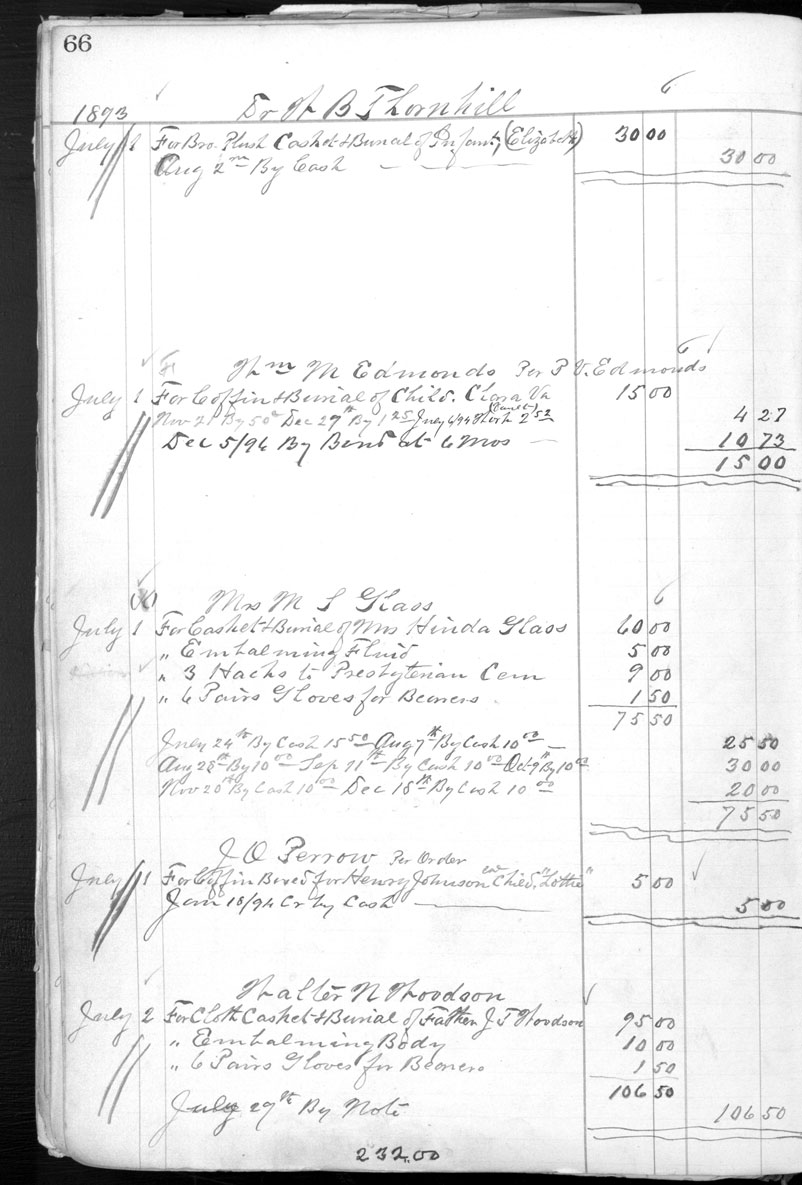 66
1893 Dr W B Thornhill
July 1 For Bro. Plush Casket & Burial of Infant, (Elizabeth) 30 00
Aug 2nd By Cash 30 00
Wm M Edmonds Per P V. Edmonds
July 1 For Coffin & Burial of Child. Clara Va 15 00
Nov 21 By 50c Dec 29th By 1 25 July 6/94 2 52 4 27
Dec 5/94 By Bond at 6 Mos 10 73
15 00
Mrs M S Glass
July 1 For Casket & Burial of Mrs Hinda Glass 60 00
" Embalming Fluid 5 00
" 3 Hacks to Presbyterian Cem 9 00
" 6 Pairs Gloves for Bearers 1 50
75 50
July 24th By Cash 15 50 Aug 7th By Cash 10 00 25 50
Aug 28th By 10 00 Sep 11th By Cash 10 00 Oct 9th By 10 00 30 00
Nov 20th By Cash 10 00 Dec 18th By Cash 10 00 20 00
75 50
J O Perrow Per Order
July 1 For Coffin Boxed for Henry Johnson cd Child, "Lottie" 5 00
Jan 18/94 Cr by Cash 5 00
Walter N Woodson
July 2 For Cloth Casket & Burial of Father J T Woodson 95 00
" Embalming Body 10 00
" 6 Pairs Gloves for Bearers 1 50
106 50
July 29th By Note 106 50
232.00